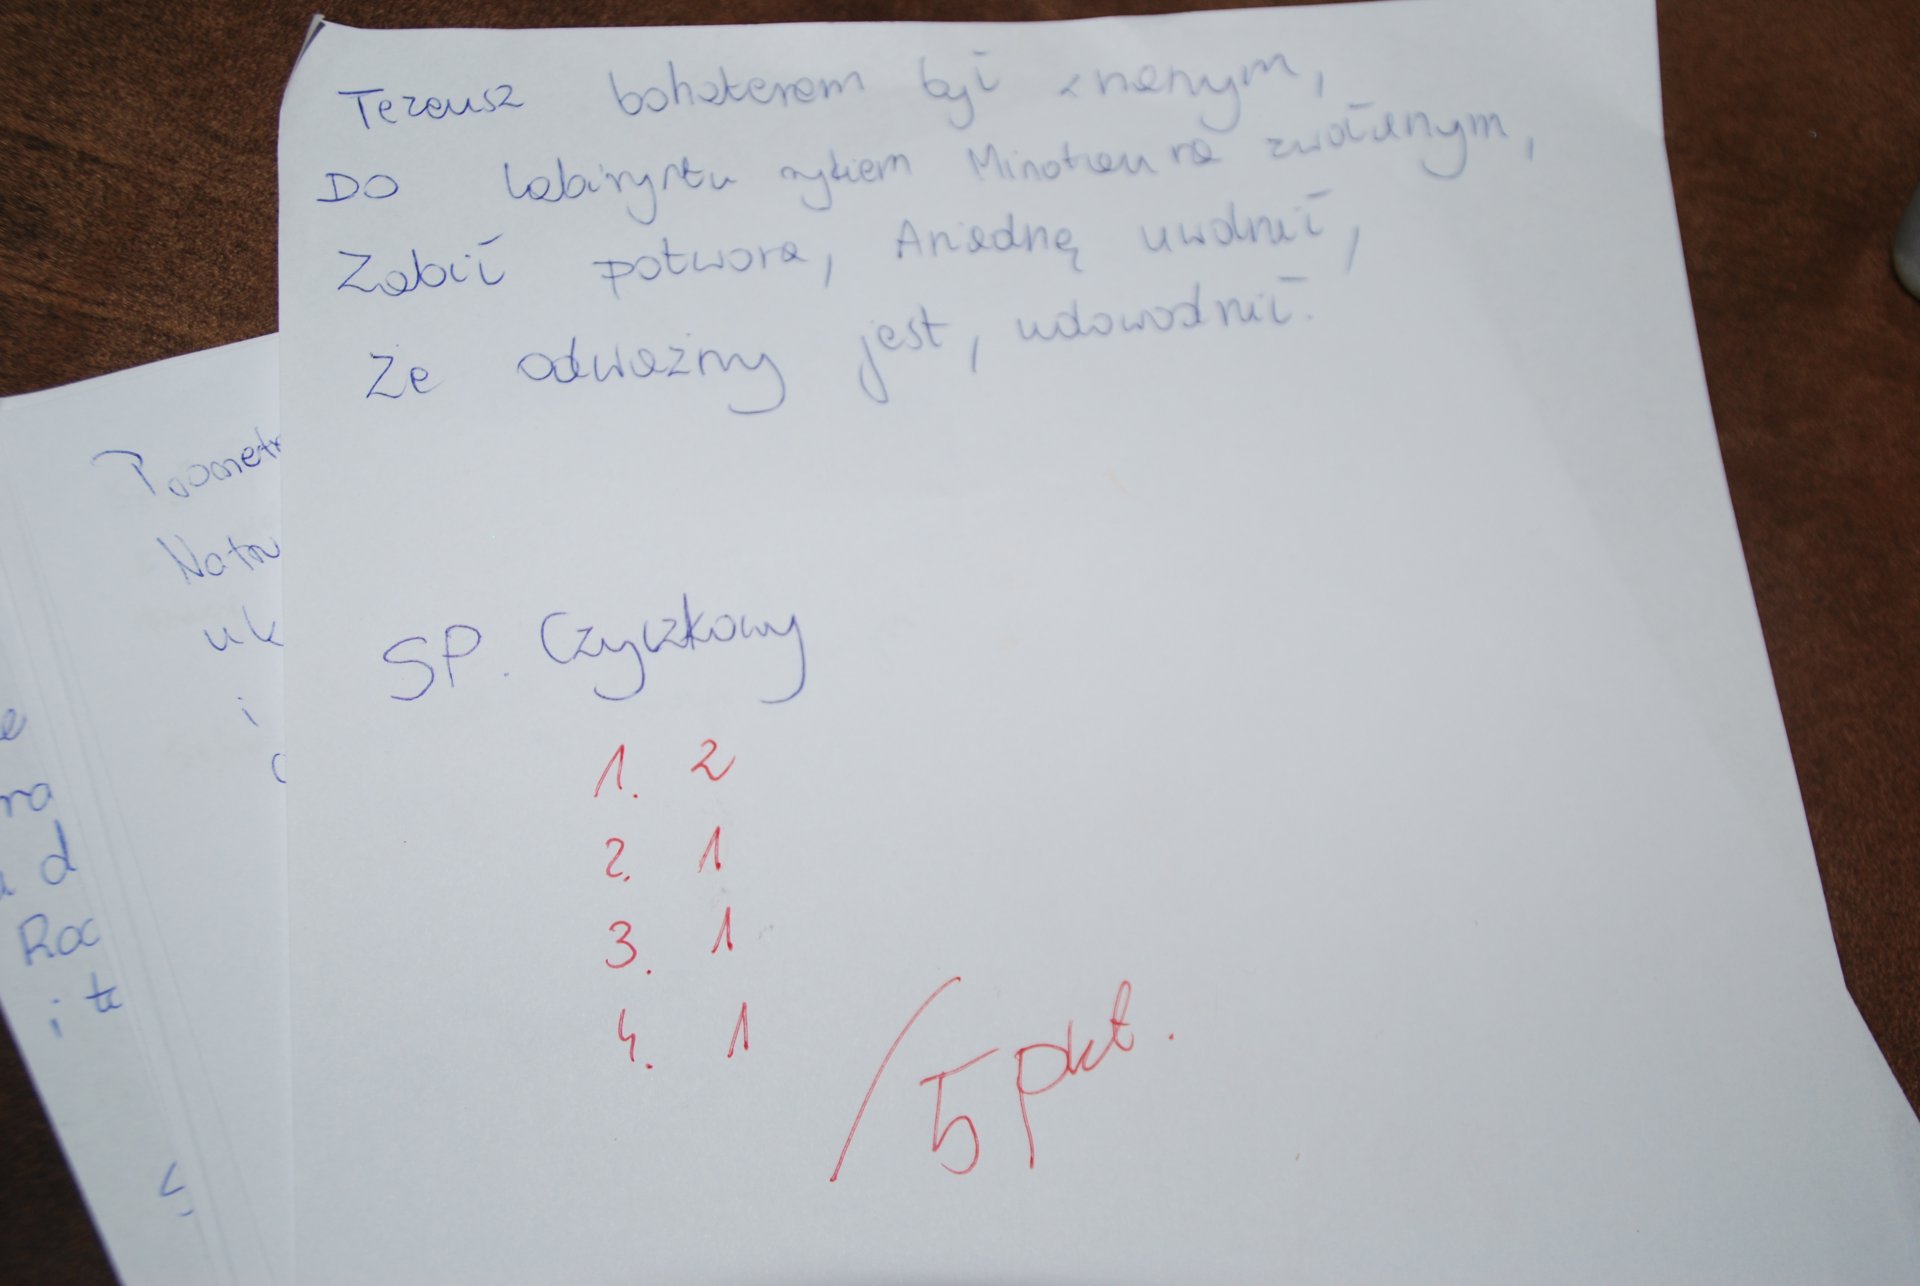 Tezeusz bohaterem był znanym,
Do labiryntu rykiem Minotaura zwołanym,
Zabił potwora, Ariadnę uwolnił,
Że odważny jest, udowodnił.
SP. Czyczkowy
1. 2
2. 1
3. 1
4. 1
/5 pkt.
Natru
uk
i
e
ra
d
Roc
i te